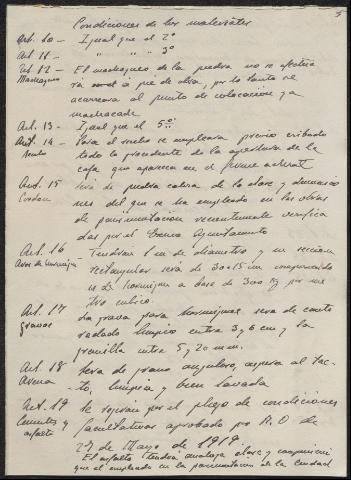 5
Condiciones de los materiales
Art. 10 - Igual que el 2º
Art. 11 - " " " 3º
Art. 12 - El machaqueo de la piedra no se efectua
Machaqueo rá a pie de obra, por lo tanto se
acarreara al punto de colocación ya
machacada
Art. 13 - Igual que el 5º
Art. 14 - Para el se empleara previo cribado
todo lo procedente de la apertura de la
caja que aparezca en el firme actual
Art. 15 Será de piedra caliza de la clase y dimensio
nes del que se ha empleado en las obras
de pavimentación recientemente verifica
das por el Excmo Ayuntamiento
Art. 16 Tendran 1 m de diametro y su seccion
rectangular será de 30 x 15 cm
de hormigon a base de 300 Kg por me
tro cubico
Art. 17 La grava para hormigones será de canto
Gravas rodado limpio entre 3 y 6 cm y la
gravilla entre 5 y 20 mm.
Art. 18 Sera de grano anguloso, aspera al tac-
Arena to, limpia y bien lavada
Art. 19 Se regiran por el pliego de condiciones
Cementos y facultativas aprobado por R.O de
asfalto 27 de Mayo de 1919
El asfalto tendrá analoga clase y
que el empleado en la pavimentacion de la Ciudad